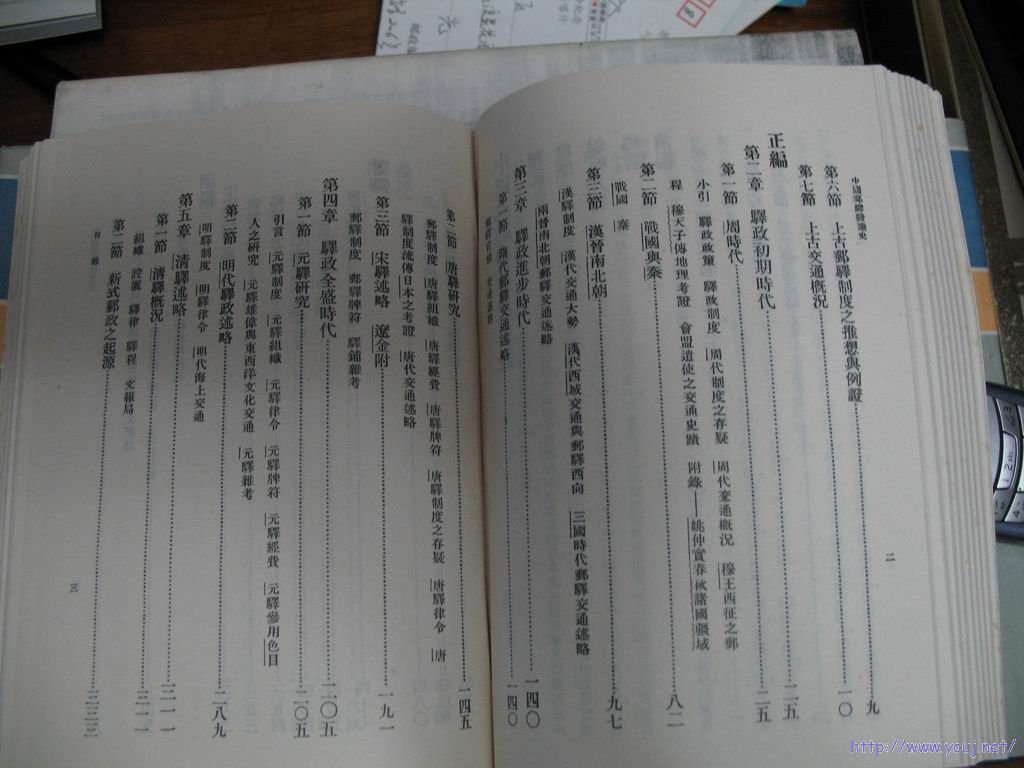 中國郵驛發達史
第六節 上古郵驛制度之推想與例證……九
第七節 上古交通概況……一〇
正編
第二章 驛政初期時代……二五
第一節 周時代……二五
小引 驛政政策 驛政制度 周代制度之存疑 周代交通概況 穆王西征之郵
程 穆天子傳地理考證 會盟遣使之交通史蹟 附錄——姚仲實春秋諸國疆域
第二節 戰國與秦……八二
戰國 秦
第三節 漢晉南北朝……九七
漢驛制度 漢代交通大勢 漢代西域交通與郵驛西向 三國時代郵驛交通述略
兩晉南北朝郵驛交通述略
第三章 驛政進步時代……一四〇
第一節 隋代郵驛交通述略……一四〇
二
第二節 唐驛研究……一四五
郵驛制度 唐驛組織 唐驛經費 唐驛牌符 唐驛制度之存疑 唐驛律令 唐
驛制度流傳日本之考證 唐代交通述略
第三節 宋驛述略 遼金附……一九一
郵驛制度 郵驛牌符 驛鋪雜考
第四章 驛政全盛時代……二〇五
第一節 元驛研究……二〇五
引言 元驛制度 元驛組織 元驛律令 元驛牌符 元驛經費 元驛參用色目
人之研究 元驛雄偉與東西洋文化交通 元驛雜考
第二節 明代驛政述略……二八九
明驛制度 明驛律令 明代海上交通
第五章 清驛述略……三一一
第一節 清驛概況……三一一
組織 設置 驛律 驛程 文報局
第二節 新式郵政之起源……三三三
目錄
三
http://www.youj.net/